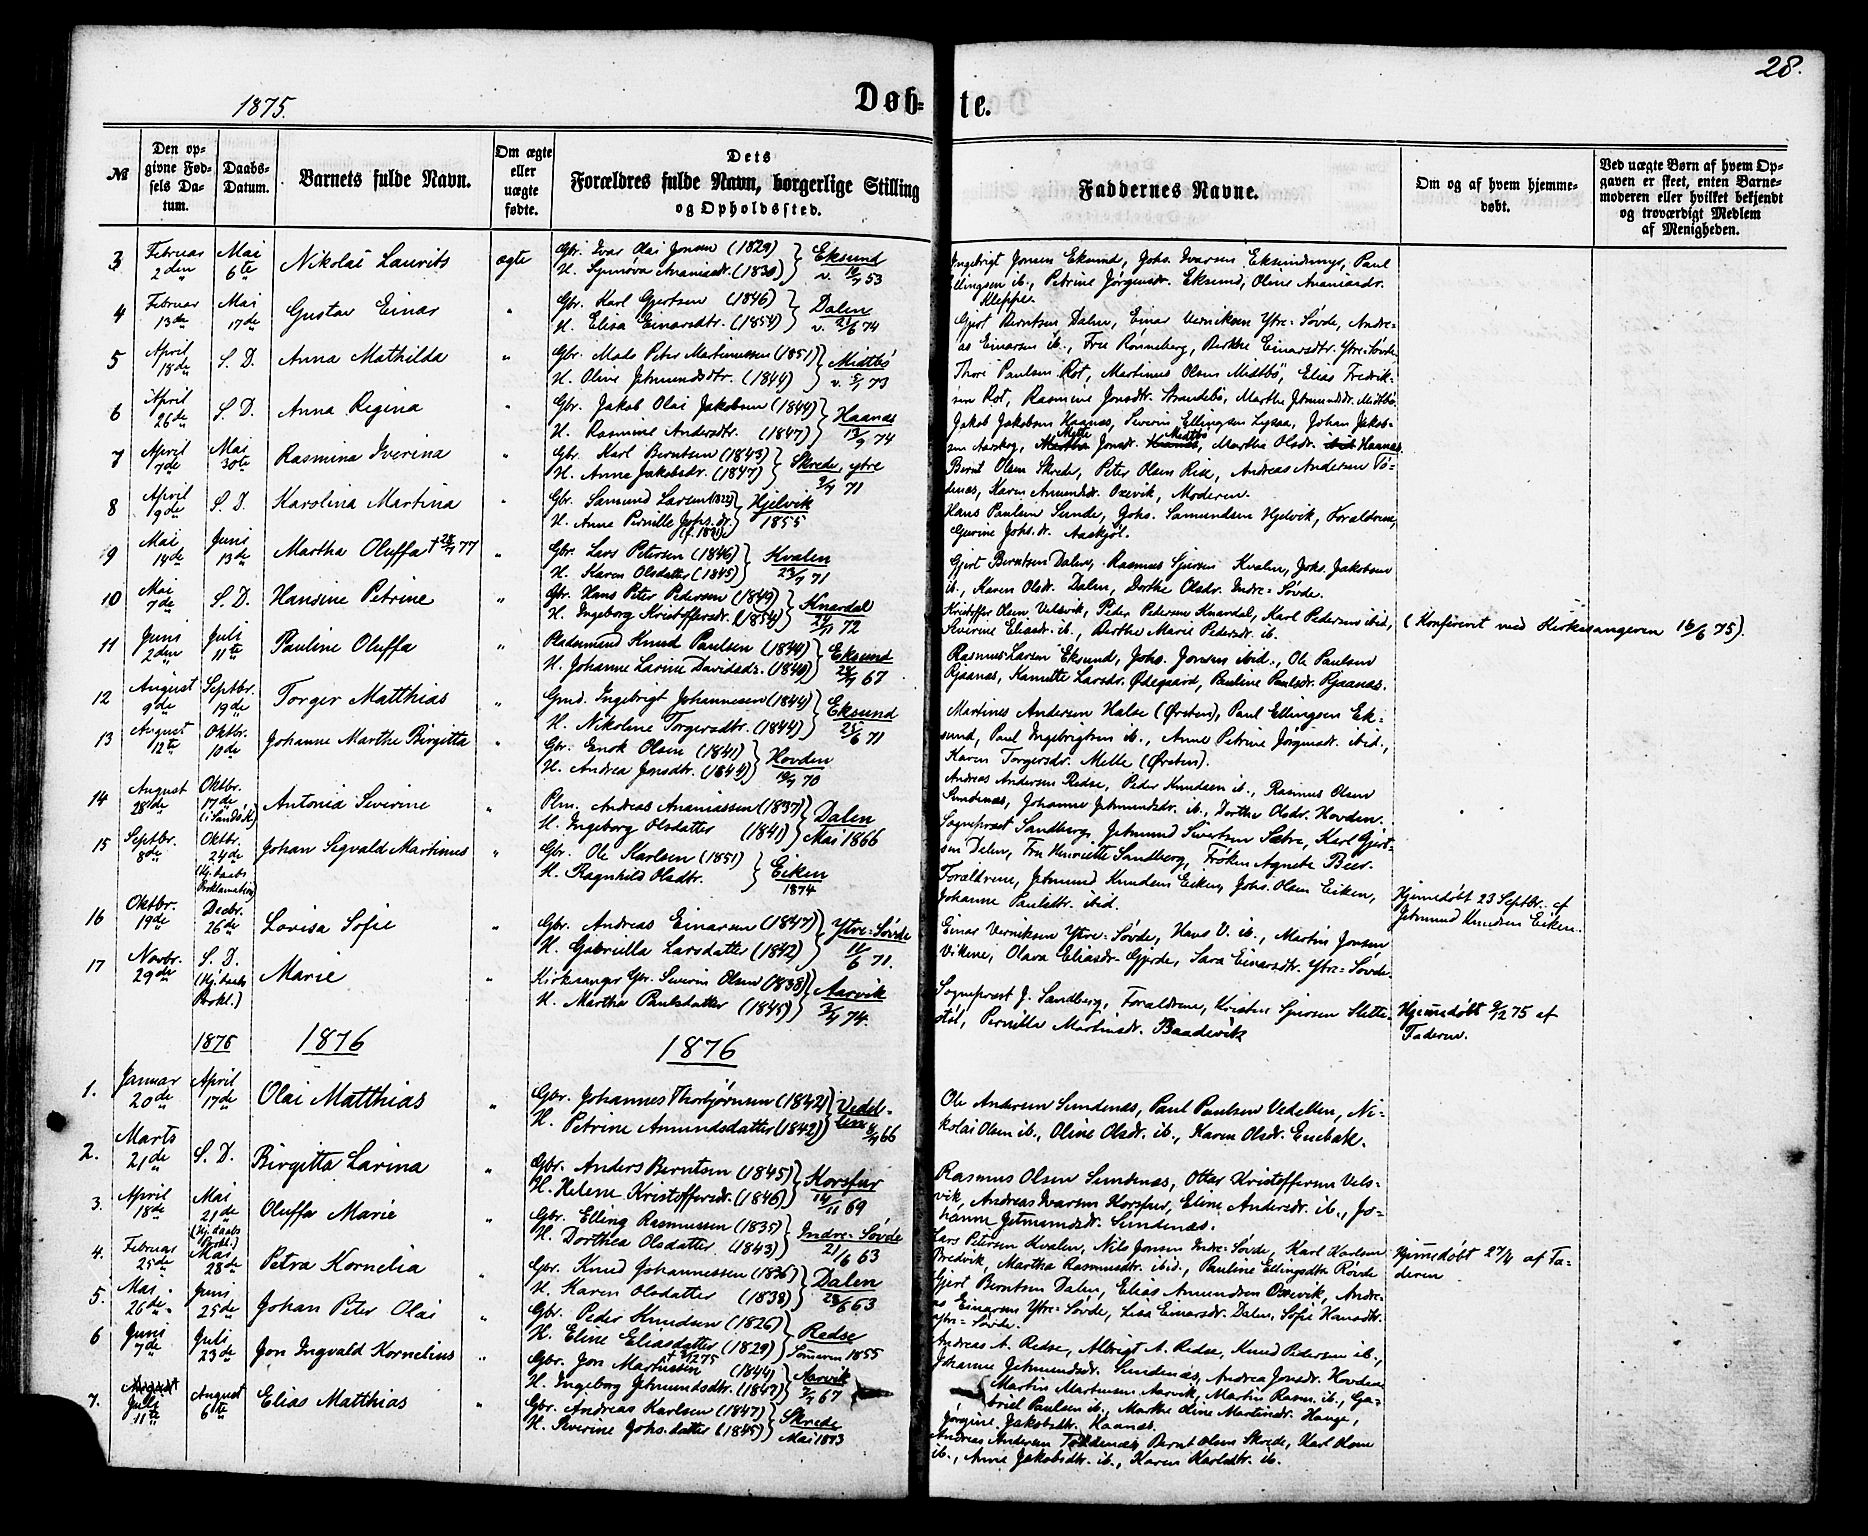 28.
1875.
Døb-te.
№
Den opgivne Fødsels Datum.
Daabs-Datum.
Barnets fulde Navn.
Om ægte eller uægte fødte.
Dets Forældres fulde Navn, borgerlige Stilling og Opholdssted.
Faddernes Navne.
Om og af hvem hjemmedøbt.
Ved uægte Børn af hvem Opgaven er skeet, enten Barnemoderen eller hvilket bekjendt og troværdigt Medlem af Menigheden.
3 Februar 2den Mai 6te Nikolai Laurits ægte
Gbr. Ivar Olai Jonsen (1829) Eksund
H. Synnøva Ananiasdr. (1830) v. 53
Ingebrigt Jonsen Eksund, Johs. Ivarsen Eksund, Paul
Ellingsen ib., Petrine Jørgensdr. Eksund, Oline Ananiasdr.
Kleppe.
4 Februar 13de Mai 17de Gustav Einar "
Gbr. Karl Gjertsen (1846) Dalen
H. Elisa Einarsdtr. (1854) v. 74
Gjert Berntsen Dalen, Einar Verniksen Ytre-Søvde, Andre-
as Einarsen ib., Fru Rønneberg, Berthe Einarsdtr. Ytre-Søvde.
5 April 18de S. D. Anna Mathilda "
Gbr. Mads Peter Martinussen (1851) Midtbø
H. Oline Jetmundsdtr. (1844) v. 73
Thore Paulsen Rot, Martinus Olsen Midtbø, Elias Fredrik-
sen Rot, Rasmine Jonsdtr. Strandebø, Marthe Jetmundsdtr. Midtbø.
6 April 26de S. D. Anna Regina "
Gbr. Jakob Olai Jakobsen (1844) Haanæs
H. Rasmine Andersdtr. (1847) 13/9 74
Jakob Jakobsen Haanæs, Severin Ellingsen Lyssa, Johan Jakob-
sen Aarskog, Mette Jonsdr. Midtbø, Martha Olsdr. Haanæs.
7 April 7de Mai 30te Rasmina Iverina "
Gbr. Karl Berntsen (1843) Skrede, ytre
H. Anne Jakobsdr. (1847) 71
Bernt Olsen Skrede, Peter Olsen Rise, Andreas Andersen Tø-
denæs, Karen Amundsdr. Oxevik, Moderen.
8 April 9de S. D. Karolina Martina "
Gbr. Samund Larsen (1822) Hjelvik
H. Anne Pernille Johs.dr. 1855
Hans Paulsen Sunde, Johs. Samundsen Hjelvik, Forældrene,
Gjurine Johs.dr. Aaskjøl.
9 Mai 14de Juni 13de Martha Oluffa † 77 "
Gbr. Lars Petersen (1846) Kvalen
H. Karen Olsdatter (1845) 71
Gjert Berntsen Dalen, Rasmus Sjursen Kvalen, Johs. Jakobsen
ib., Karen Olsdr. Dalen, Dorthe Olsdr. Indre-Søvde.
10 Mai 7de S. D. Hansine Petrine "
Gbr. Hans Peter Pedersen (1849) Knardal
H. Ingeborg Kristoffersdr. (1854) 72
Kristoffer Olsen Velsvik, Peder Pedersen Knardal, Karl Pedersen ibid,
Severine Eliasdr. ib., Berthe Marie Pedersdr. ib.
(Konfereret med Kirkesangeren 16/6 75).
11 Juni 2den Juli 11te Pauline Oluffa "
Pladsmand Knud Paulsen (1844) Eksund
H. Johanne Larine Davidsdr. (1840) 67
Rasmus Larsen Eksund, Johs. Jonsen ibid., Ole Paulsen
Rjaanæs, Kanutte Larsdr. Ødegaard, Pauline Paulsdr. Rjaanæs.
12 August 9de Septbr. 19de Torger Matthias "
Gmd. Ingebrigt Johannesen (1844) Eksund
H. Nikoline Torgersdtr. (1844) 25/6 71
Martines Andersen Halse (Ørsten), Paul Ellingsen Ek-
sund, Paul Ingebrigtsen ib., Anne Petrine Jørgensdr. ibid.,
Karen Torgersdr. Melle (Ørsten).
13 August 12te Oktbr. 10de Johanne Marthe Birgitta
Gbr. Enok Olsen (1841) Hovden
H. Andrea Jonsdtr. (1844) 70
Andreas Andersen Redse, Peder Knudsen ib., Rasmus Olsen
Sundenæs, Johanne Jetmundsdr. ib., Dorthe Olsdr. Hovden.
14 August 28de Oktbr. 17de (i Sandsk.) Antonia Severine "
Plm. Andreas Ananiassen (1837) Dalen
H. Ingeborg Olsdatter (1841) Mai 1866
Sogneprest Sandberg, Jetmund Sivertsen Sætre, Karl Gjert-
sen Dalen, Fru Henriette Sandberg, Frøken Agnete Beer.
15 Septbr. 8de Oktbr. 24de (Hj.daabs Proklamation) Johan Sigvald Martinus "
Gbr. Ole Karlsen (1851) Eiken
H. Ragnhild Olsdtr. 1874
Forældrene, Jetmund Knudsen Eiken, Johs. Olsen Eiken,
Johanne Paulsdtr. ibid.
Hjemmedøbt 23 Septbr. af
Jetmund Knudsen Eiken.
16 Oktbr. 19de Decbr. 26de Lovisa Sofie "
Gbr. Andreas Einarsen (1847) Ytre-Søvde
H. Gabriella Larsdatter (1842) 11/6 71.
Einar Verniksen Ytre-Søvde, Hans V. ib., Martin Jonsen
Vikene, Olava Eliasdr. Gjerde, Sara Einarsdtr. Ytre-Søvde.
17 Novbr. 29de S. D. (Hj.daabs Prokl.) Marie "
Kirkesanger Gbr. Severin Olsen (1838) Aarvik
H. Martha Paulsdatter (1845) 74.
Sogneprest J. Sandberg, Forældrene, Kristen Sjursen Slette-
støl, Pernille Martinsdr. Baadsvik
Hjemmedøbt 75 af
Faderen.
1876 1876 1876
1. Januar 20de April 17de Olai Matthias "
Gbr. Johannes Thorbjørnsen (1842) Vedel-
H. Petrine Amundsdatter (1842) len 66
Ole Andersen Sundenæs, Paul Paulsen Vedellen, Ni-
kolai Olsen ib., Oline Olsdr. ib., Karen Olsdr. Enebak.
2. Marts 21de S. D. Birgitta Larina "
Gbr. Anders Berntsen (1845) Korsfur
H. Helene Kristoffersdr. (1846) 14/11 69
Rasmus Olsen Sundenæs, Ottar Kristoffersen Vels-
vik, Andreas Ivarsen Korsfur, Eline Andersdr. ib., Jo-
hanne Jetmundsdr. Sundenæs.
3. April 18de Mai 21de (Hj.daabs Prokl.) Oluffa Marie "
Gbr. Elling Rasmussen (1835) Indre-Søvde
H. Dorthea Olsdatter (1843) 21/6 63
Lars Petersen Kvalen, Nils Jonsen Indre-Søvde, Karl Karlsen
Bredvik, Martha Rasmusdtr. ibid., Pauline Ellingsdtr. Røvde
Hjemmedøbt 27/4 af Fa-
deren
4. Februar 25de Mai 28de Petra Kornelia "
Gbr. Knud Johannessen (1836) Dalen
H. Karen Olsdatter (1838) 28/6 63
Gjert Berntsen Dalen, Elias Amundsen Oxevik, Andre-
as Einarsen Ytre-Søvde, Lisa Einarsdr. Dalen, Sofie Hansdtr.
Ytre-Søvde.
5. Mai 26de Juni 25de Johan Peter Olai "
Gbr. Peder Knudsen (1826) Redse
H. Eline Eliasdatter (1829) Sommeren 1855
Andreas A. Redse, Albrigt A. Redse, Knud Pedersen ib.,
Johanne Jetmundsdr. Sundenæs, Andrea Jonsdr. Hovden
6 Juni 7de Juli 23de Jon Ingvald Kornelius "
Gbr. Jon Martinssen (1844) Aarvik
H. Ingeborg Jetmundsdtr. (1847) 67
Martin Martinsen Aarvik, Martin Rasm. ib., Ga-
briel Paulsen ib., Marthe Oline Martinsdr. Hauge,
Jørgine Jakobsdtr. Haanæs.
7. August Juli 11te August 6te Elias Matthias "
Gbr. Andreas Karlsen (1847) Skrede
H. Severine Johs.datter (1845) Mai 1873
Andreas Andersen Tødenæs, Bernt Olsen Skrede, Karl Olsen
ib., Anne Jakobsdtr. ib., Karen Karlsdtr. ib.